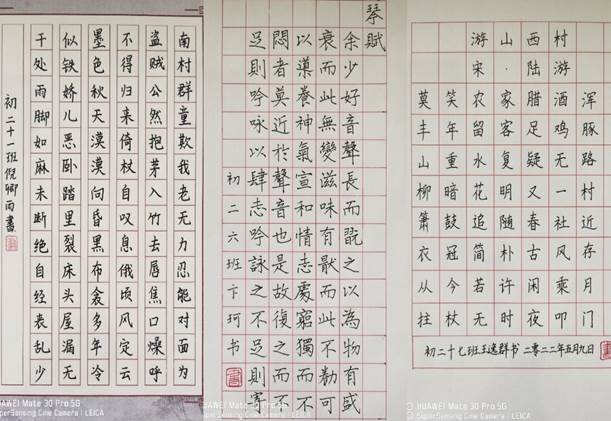 南村群童欺我老无力忍能对面为
盗贼公然抱茅入竹去唇焦口燥呼
不得归来倚杖自叹息俄顷风定云
墨色秋天漠漠向昏黑布衾多年冷
似铁娇儿恶卧踏里裂床头屋漏无
干处雨脚如麻未断绝自经丧乱少
初二十一班倪卿雨書
HUAWEI Mate 30 Pro 5G
SuperSensing Cine Camera | LEICA
琴賦
余少好音聲長而翫之以為物有盛
衰而此無變滋味有厭而此不勌可
以導養神氣宣和情志處窮獨而不
悶者莫近於聲音也是故復之而不
足則吟咏以肆志吟詠之不足則寄
初二六班卞珂书
HUAWEI Mate 30 Pro 5G
SuperSensing Cine Camera | LEICA
游山西村
宋·陆游
莫笑农家腊酒浑
丰年留客足鸡豚
山重水复疑无路
柳暗花明又一村
箫鼓追随春社近
衣冠简朴古风存
从今若许闲乘月
拄杖无时夜叩门
初二十七班王逸群书 二〇二二年五月九日
HUAWEI Mate 30 Pro 5G
SuperSensing Cine Camera | LEICA